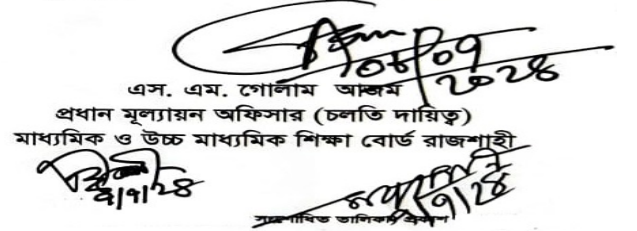 ০৮/০৭
২০২৪
এস. এম. গোলাম আজম
প্রধান মূল্যায়ন অফিসার (চলতি দায়িত্ব)
মাধ্যমিক ও উচ্চ মাধ্যমিক শিক্ষা বোর্ড রাজশাহী
/৭/২৪
/৭/২৪
তালিকা